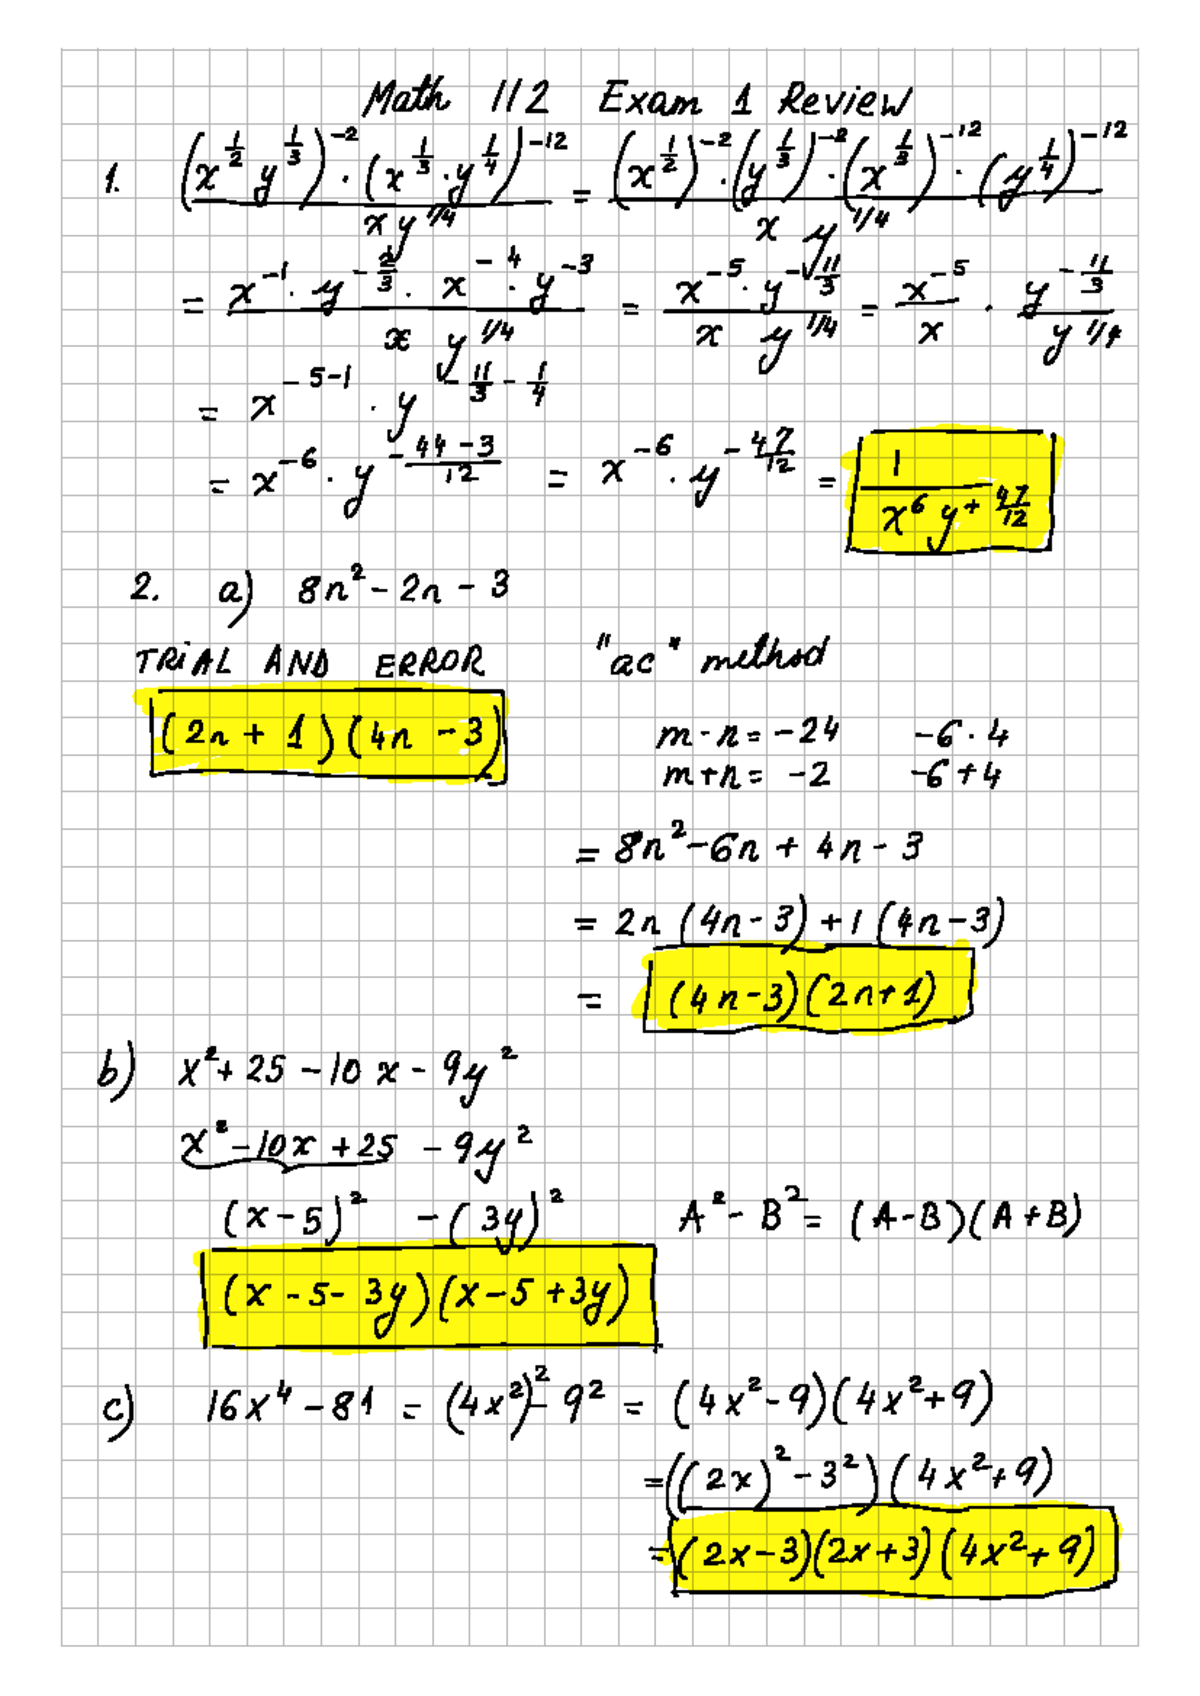 Math 112 Exam 1 Review
1. (x^(1/2) y^(1/3))^-2 · (x^(1/3) · y^(1/4))^-12 / x y^1/4 = (x^(1/2))^-2 · (y^(1/3))^-2 · (x^(1/3))^-12 · (y^(1/4))^-12 / x y^1/4
= x^-1 · y^-2/3 · x^-4 · y^-3 / x y^1/4 = x^-5 · y^-11/3 / x y^1/4 = x^-5 / x · y^-11/3 / y^1/4
= x^(-5-1) · y^(-11/3 - 1/4)
= x^-6 · y^(-44-3/12) = x^-6 · y^-47/12 = 1 / x^6 y^+47/12
2. a) 8n² - 2n - 3
TRIAL AND ERROR "ac" method
(2n + 1)(4n - 3) m·n = -24 -6·4
m+n = -2 -6+4
= 8n² - 6n + 4n - 3
= 2n (4n-3) + 1 (4n-3)
= (4n-3)(2n+1)
b) x² + 25 - 10x - 9y²
x² - 10x + 25 - 9y²
(x-5)² - (3y)² A² - B² = (A-B)(A+B)
(x - 5 - 3y)(x - 5 + 3y)
c) 16x⁴ - 81 = (4x²)² - 9² = (4x² - 9)(4x² + 9)
= ((2x)² - 3²)(4x² + 9)
= (2x-3)(2x+3)(4x² + 9)